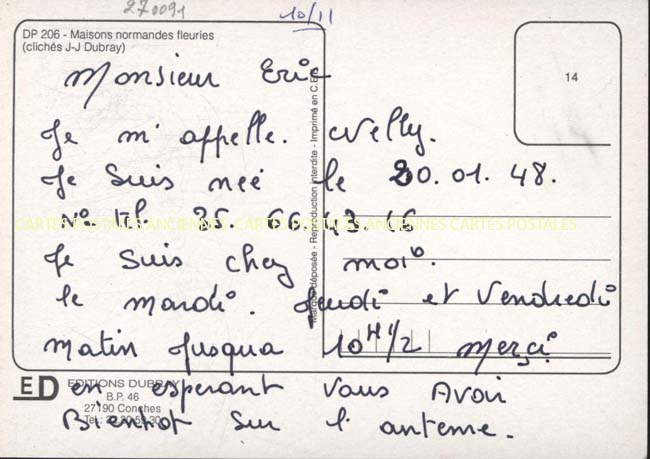 270091
10/11
DP 206 - Maisons normandes fleuries
(clichés J-J Dubray)
14
Monsieur Eric
Je m'appelle. Nelly.
Je suis neé le 20.01.48.
N° tél 35. 66.43
CARTES POSTALES ANCIENNES CARTES POSTALES
Je suis chez moi.
le mardi. Jeudi et Vendredi
matin jusqua 10H1/2 merçi
en esperant vous Avoir
Bientot sur l'antenne.
Marque déposée - Reproduction interdite - Imprimé en C.E.
ED
EDITIONS DUBRAY
B.P. 46
27190 Conches
Tél.